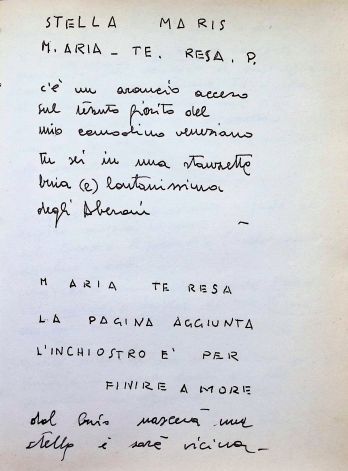 STELLA MARIS
M. ARIA - TE. RESA. P.
c'è un arancio acceso
sul tessuto fiorito del
mio comodino veneziano
Tu sei in una stanzetta
buia (e) lontanissima
degli Alberoni
—
M ARIA TE RESA
LA PAGINA AGGIUNTA
L'INCHIOSTRO E' PER
FINIRE A MORE
dal buio nascerà una
stella e sarà vicina—